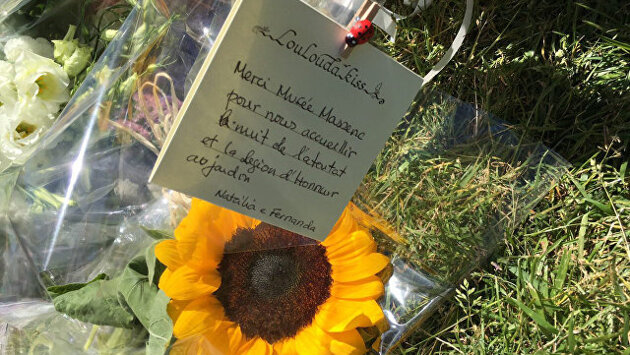 Merci Musée Massena
pour nous accueillir
la nuit de l'attentat
et la légion d'honneur
au jardin
Natália e Fernanda